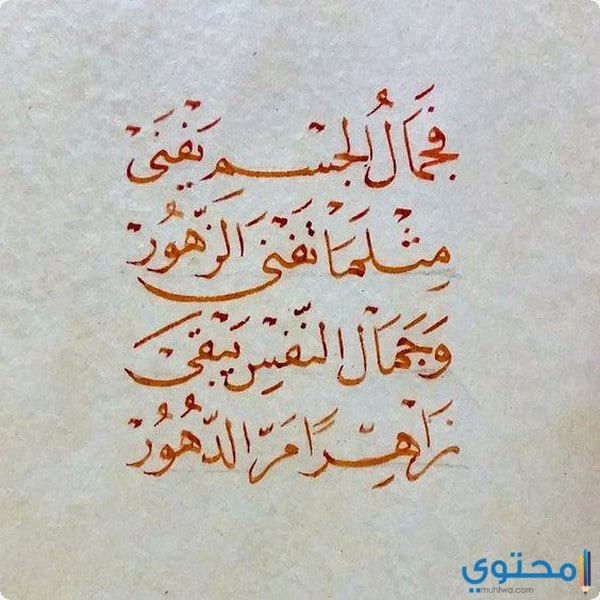 فَجَمَالُ الجِسْمِ يَفْنَى
مِثْلَمَا تَفْنَى الزُّهُورْ
وَجَمَالُ النَّفْسِ يَبْقَى
زَاهِرًا مَرَّ الدُّهُورْ
محتوى
muhtwa.com